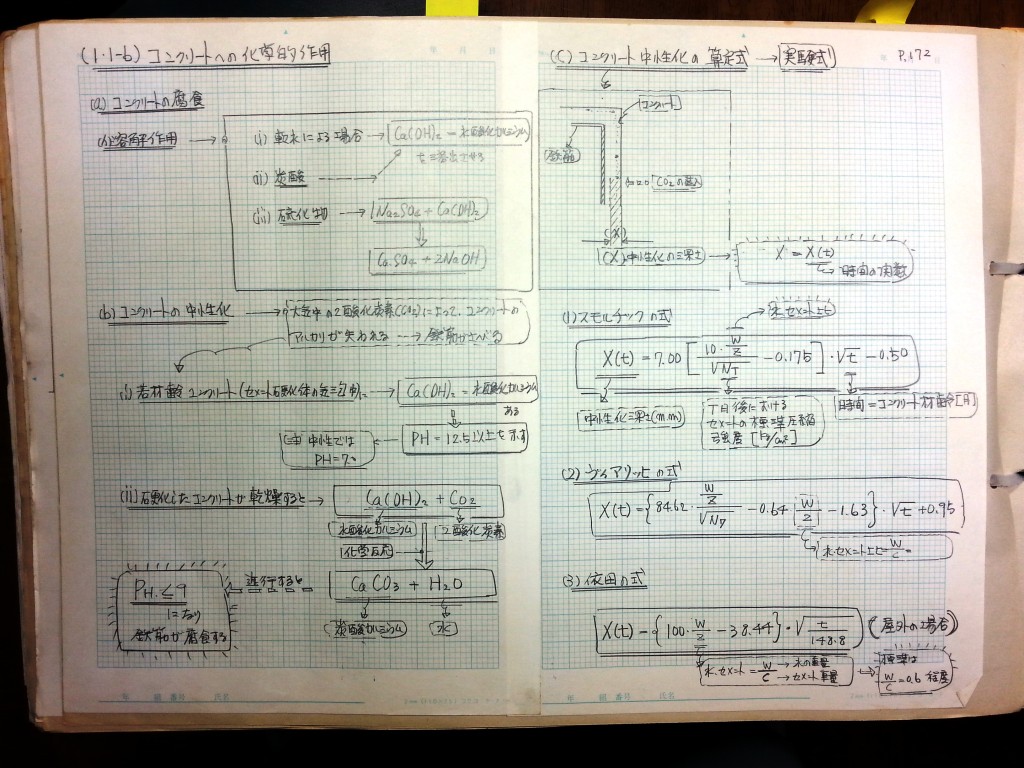 (1・1-b) コンクリートへの化学的作用
(a) コンクリートの腐食
(1)溶解作用
(i) 軟水による場合 → Ca(OH)2 = 水酸化カルシウム
を溶出させる
(ii) 炭酸
(iii) 硫化物 → Na2SO4 + Ca(OH)2
CaSO4 + 2NaOH
(b) コンクリートの中性化 → 大気中の2酸化炭素(CO2)によって、コンクリートの
アルカリが失われる → 鉄筋がさびる
(i) 若材齢コンクリート → Ca(OH)2 = 水酸化カルシウム
ある
PH = 12.5以上を示す
(注) 中性では
PH = 7。
(ii) 硬化したコンクリートが乾燥すると → Ca(OH)2 + CO2
水酸化カルシウム 2酸化炭素
化学反応
CaCO3 + H2O
炭酸カルシウム 水
進行すると
PH ≤ 9
になり
鉄筋が腐食する
(C) コンクリート中性化の算定式 → 実験式
P.172
コンクリート
鉄筋
CO2の進入
(X)
(X)中性化の深さ
X = X(t)
時間の関数
(1)スモルチックの式
水・セメント比
X(t) = 7.00 [ 10・W/Z / √NT − 0.175 ]・√t − 0.50
中性化深さ(m.m)
7日後における
セメントの標準圧縮
強度 [kg/cm2]
時間 = コンクリート材齢[月]
(2) ヴィアリッヒの式
X(t) = { 84.62・W/Z / √N7 − 0.64・W/Z − 1.63 }・√t + 0.95
水・セメント比 = W/C
(3) 依田の式
X(t) = { 100・W/Z − 38.44 }・√t/148.8 (屋外の場合)
水・セメント = W/C → 水の重量
→ セメント重量
標準は
W/C = 0.6 程度